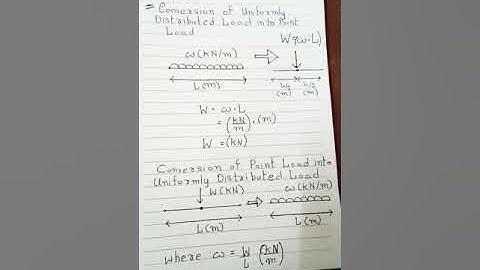 = Conversion of Uniformly
Distributed Load into Point
Load
W=(ω·L)
ω(kN/m)
L(m)
L/2 (m) L/2 (m)
W = ω·L
= (kN/m)·(m)
W = (kN)
Conversion of Point Load into
Uniformly Distributed Load
W(kN)
ω(kN/m)
L(m)
L(m)
where ω = W/L (kN/m)